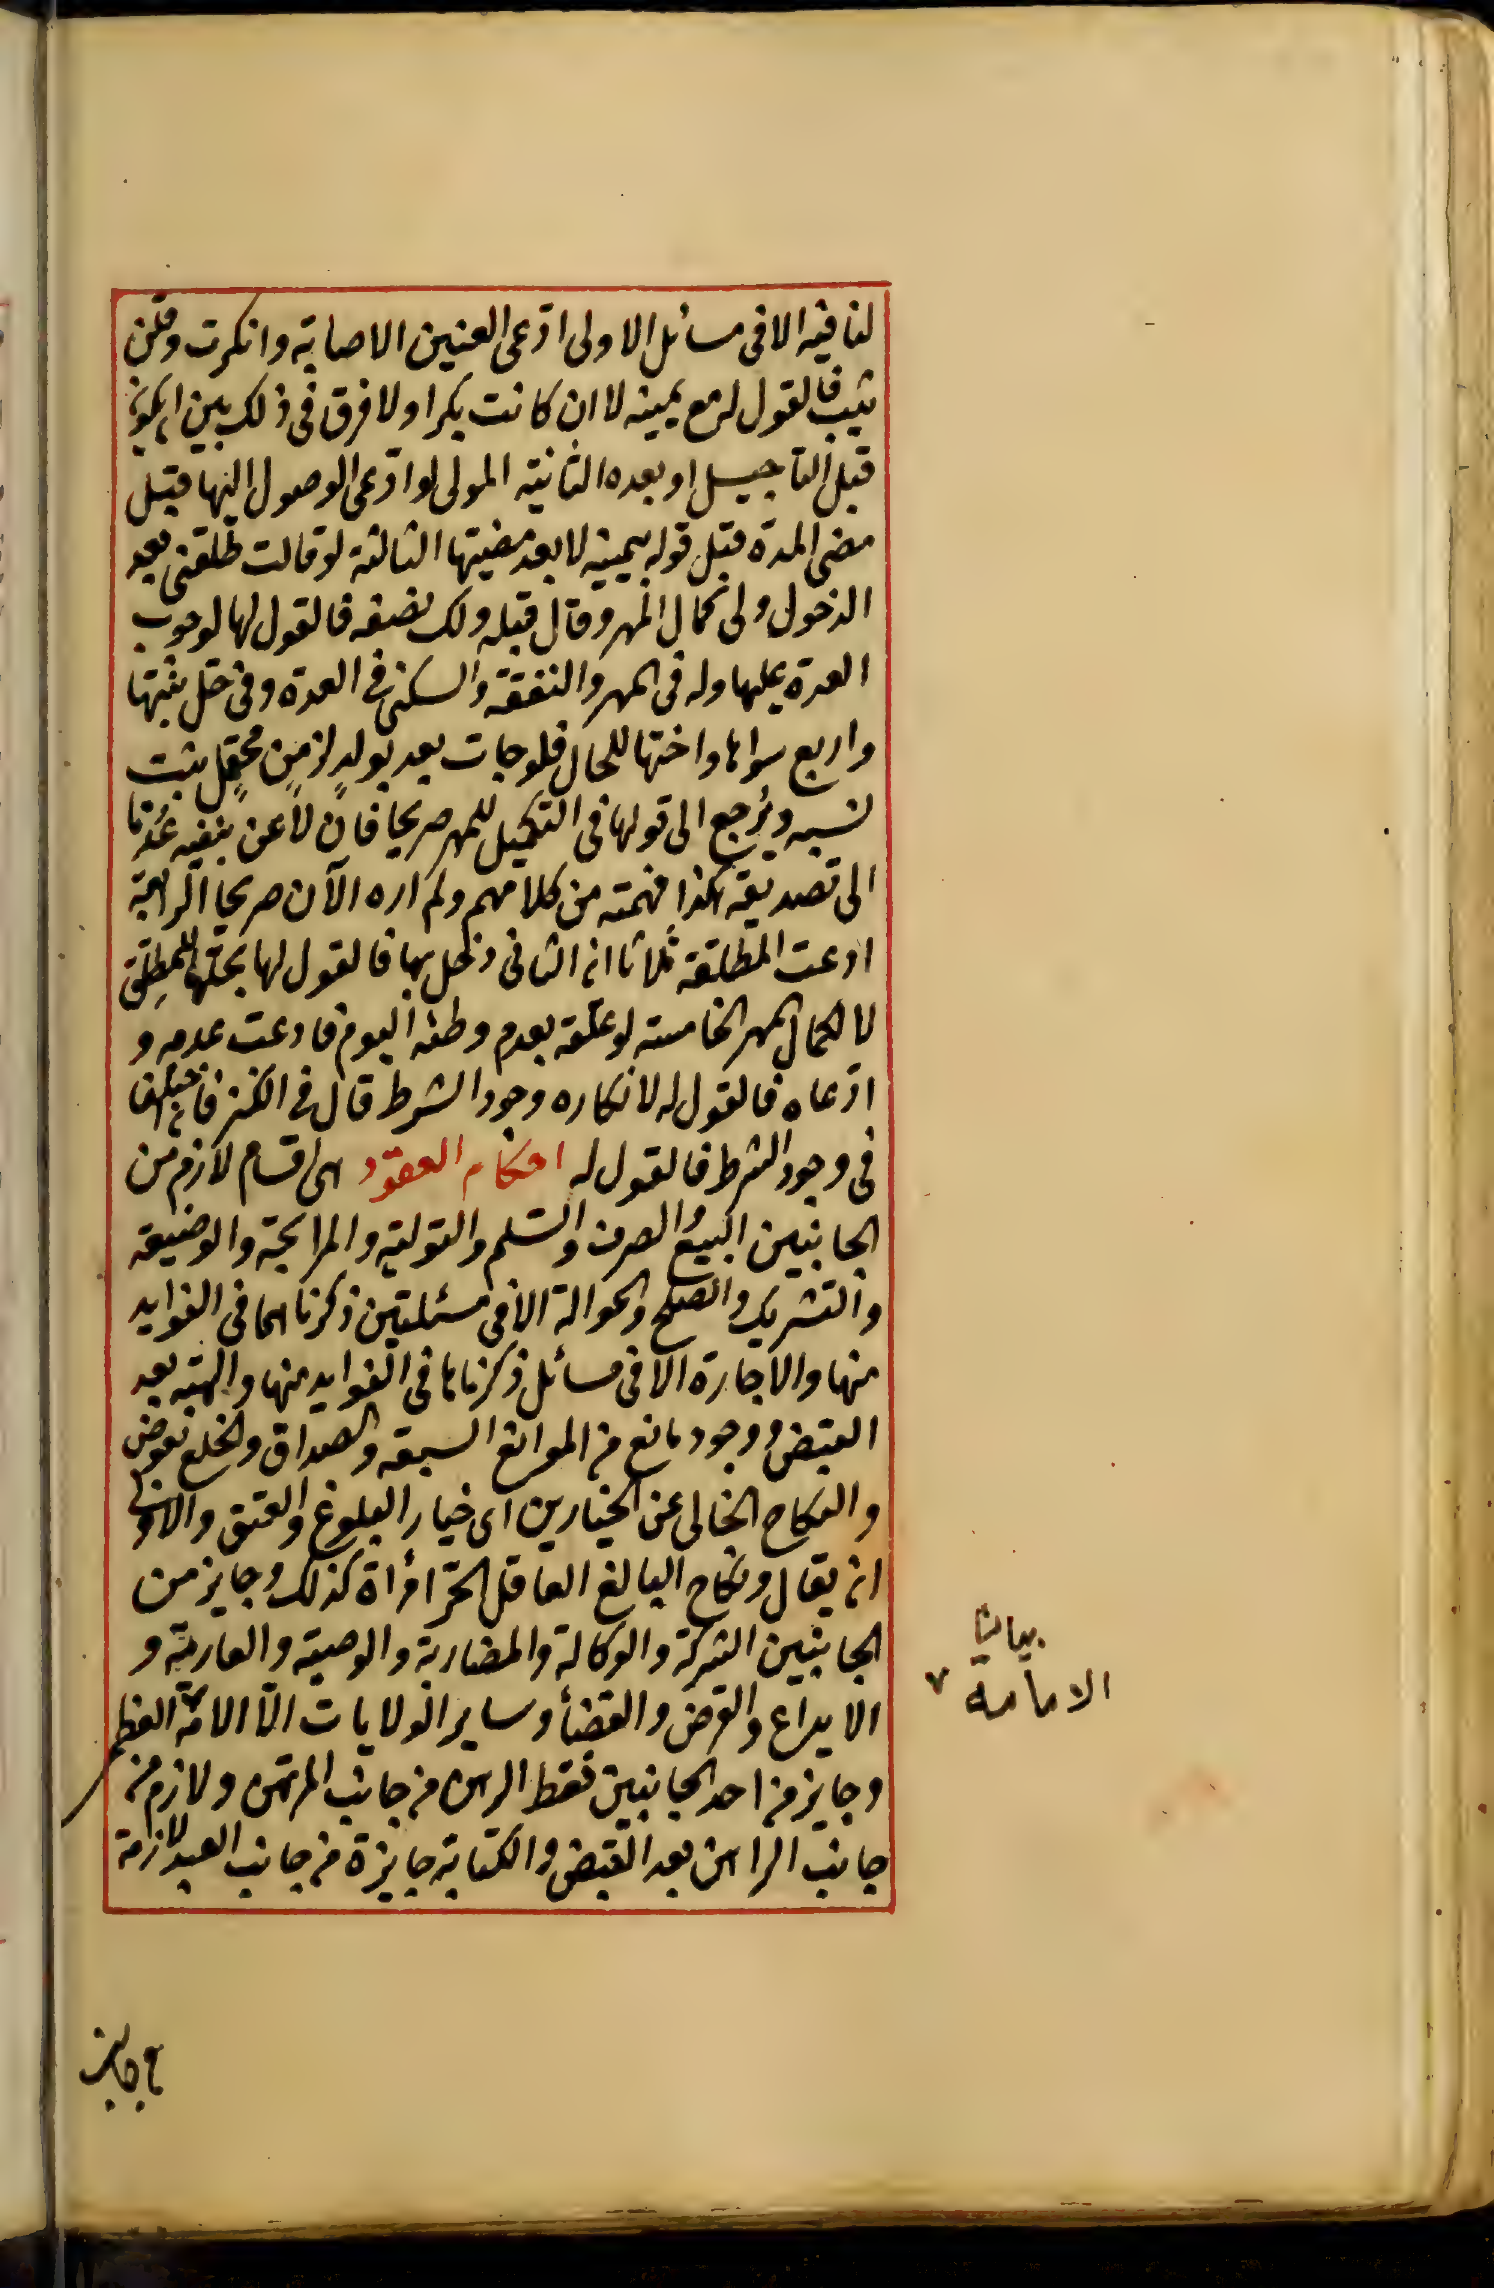 لنافيه الا فى مسائل الاولى ادّعى العنين الاصابة وانكرت وقلن
ثيب فالقول له مع يمينه لا ان كانت بكرا ولا فرق فى ذلك بين ان يكون
قبل التاجيل او بعده الثانية المولى لو ادّعى الوصول اليها قبل
مضى المدة قبل قوله بيمينه لا بعد مضيتها الثالثة لو قالت طلقنى بعد
الدخول ولى كمال المهر وقال قبله ولك نصفه فالقول لها لوجوب
العدة عليها وله فى المهر والنفقة والسكنى فى العدة وفى حل بنتها
واربع سواها واختها للحال فلو جات بعد بولدٍ لزمنٍ محتملٍ ثبت
نسبه ويُرجع الى قولها فى التكميل للمهر صريحا فان لاعن بنفيه عُدنا
الى تصديقه هكذا فهمته من كلامهم ولم اره الآن صريحا الرابعة
ادعت المطلقة ثلاثا ان الثانى دخل بها فالقول لها بحلّها للمطلِّق
لا لكمال المهر الخامسة لو علّقه بعدم وطئه اليوم فادعت عدمه و
ادّعاه فالقول له لانكاره وجود الشرط قال فى الكنز فان اختلفا
فى وجود الشرط فالقول له احكام العقود هى اقسام لازم من
الجانبين البيع والصرف والسّلم والتولية والمرابحة والوضيعة
والتشريك والصلح والحوالة الا فى مسئلتين ذكرناهما فى الفوايد
منها والاجارة الا فى مسائل ذكرناها فى الفوايد منها والهبة بعد
القبض ووجود مانع من الموانع السبعة والصداق والخلع بعوض
والنكاح الخالى عن الخيارين اى خيار البلوغ والعتق والاولى
ان يقال ونكاح البالغ العاقل الحرّ امرأة كذلك وجايز من
الجانبين الشركة والوكالة والمضاربة والوصية والعارية و
الايداع والقرض والقضأ وساير الولايات الّا الامامة العظمى
وجايز من احد الجانبين فقط الرهن من جانب المرتهن ولازم من
جانب الراهن بعد القبض والكتابة جايزة من جانب العبد لازمة
الامامة ٧
من جانب